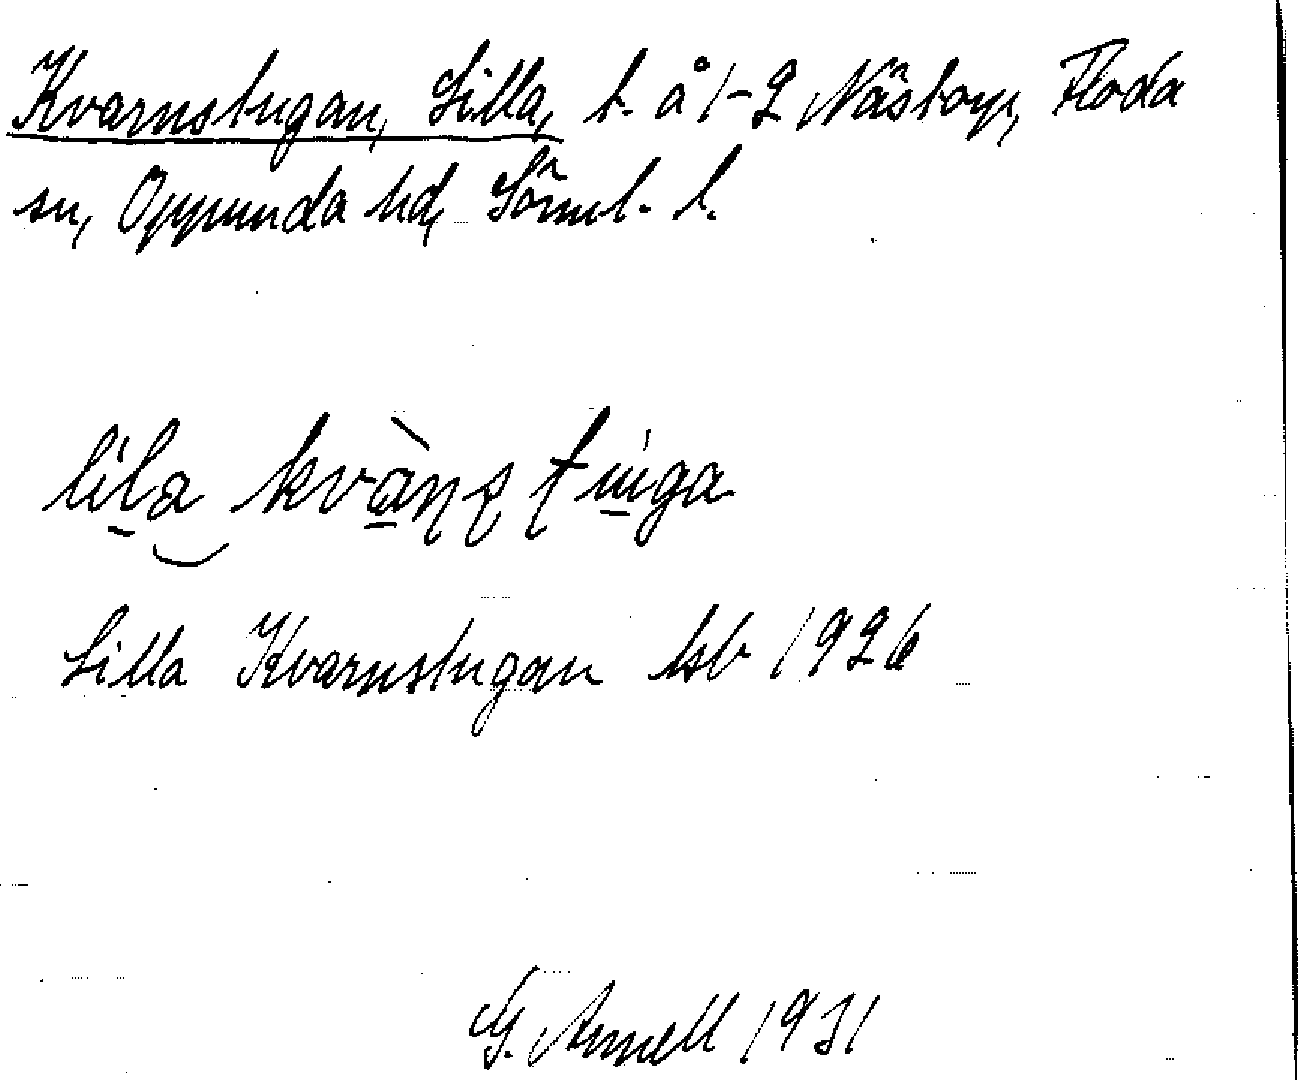 Kvarnstugan, Lilla, t. å 1-2 Näsby, Floda
sn, Oppunda hd, Söml. l.
lila kvàṇʂ ṭuiga
Lilla Kvarnstugan hsb 1926
G. Arnell 1931